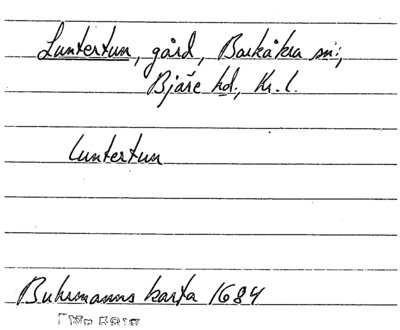 Luntertun, gård, Barkåkra sn;,
Bjäre hd., Kr. l.
Luntertun
Buhrmanns karta 1684